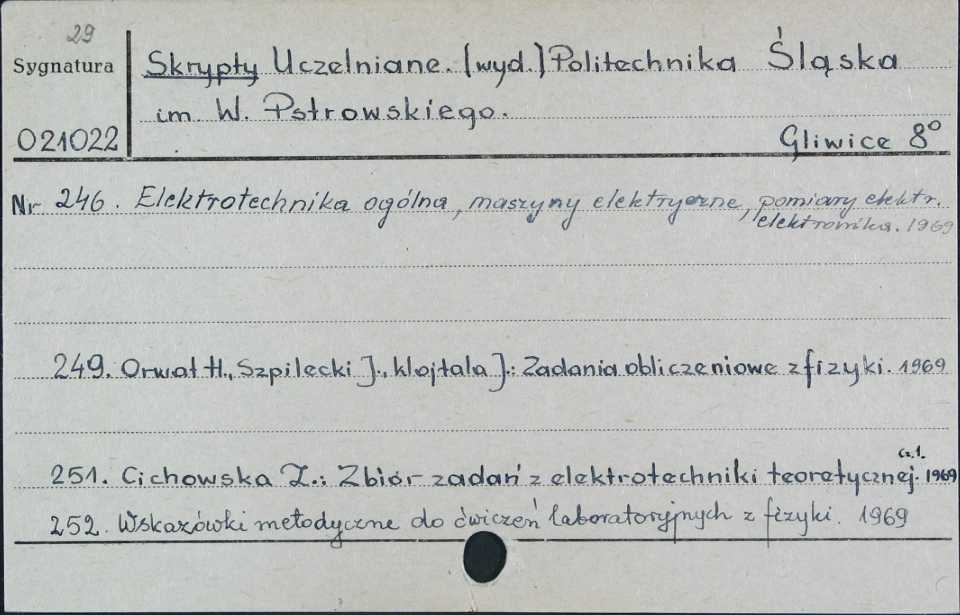 29
Sygnatura
021022
Skrypty Uczelniane. [wyd.] Politechnika Śląska
im. W. Pstrowskiego.
Gliwice 8°
Nr 246. Elektrotechnika ogólna, maszyny elektryczne, pomiary elektr.
elektronika. 1969
249. Orwat H., Szpilecki J., Klojtala J.: Zadania obliczeniowe z fizyki. 1969
251. Cichowska Z.: Zbiór zadań z elektrotechniki teoretycznej. Cz.1. 1969
252. Wskazówki metodyczne do ćwiczeń laboratoryjnych z fizyki. 1969